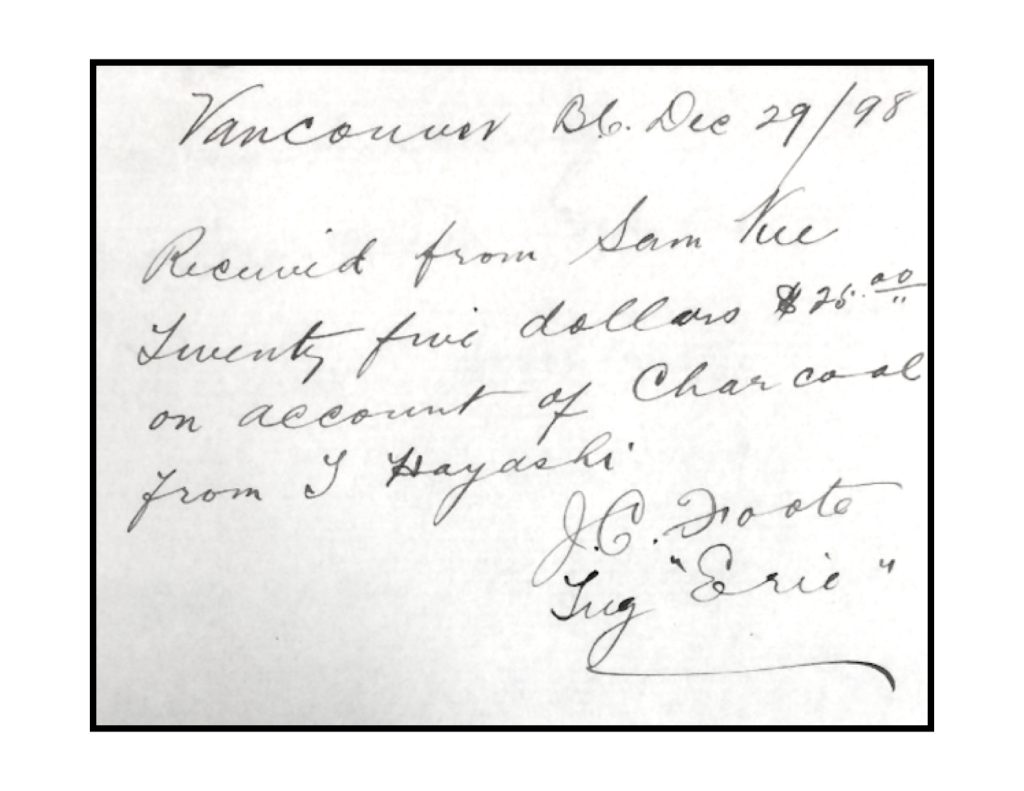 Vancouver BC. Dec 29/98
Received from Sam Kee
Twenty five dollars $25.00
on account of Charcoal
from T Hayashi
J.C. Foote
Tug "Erie"